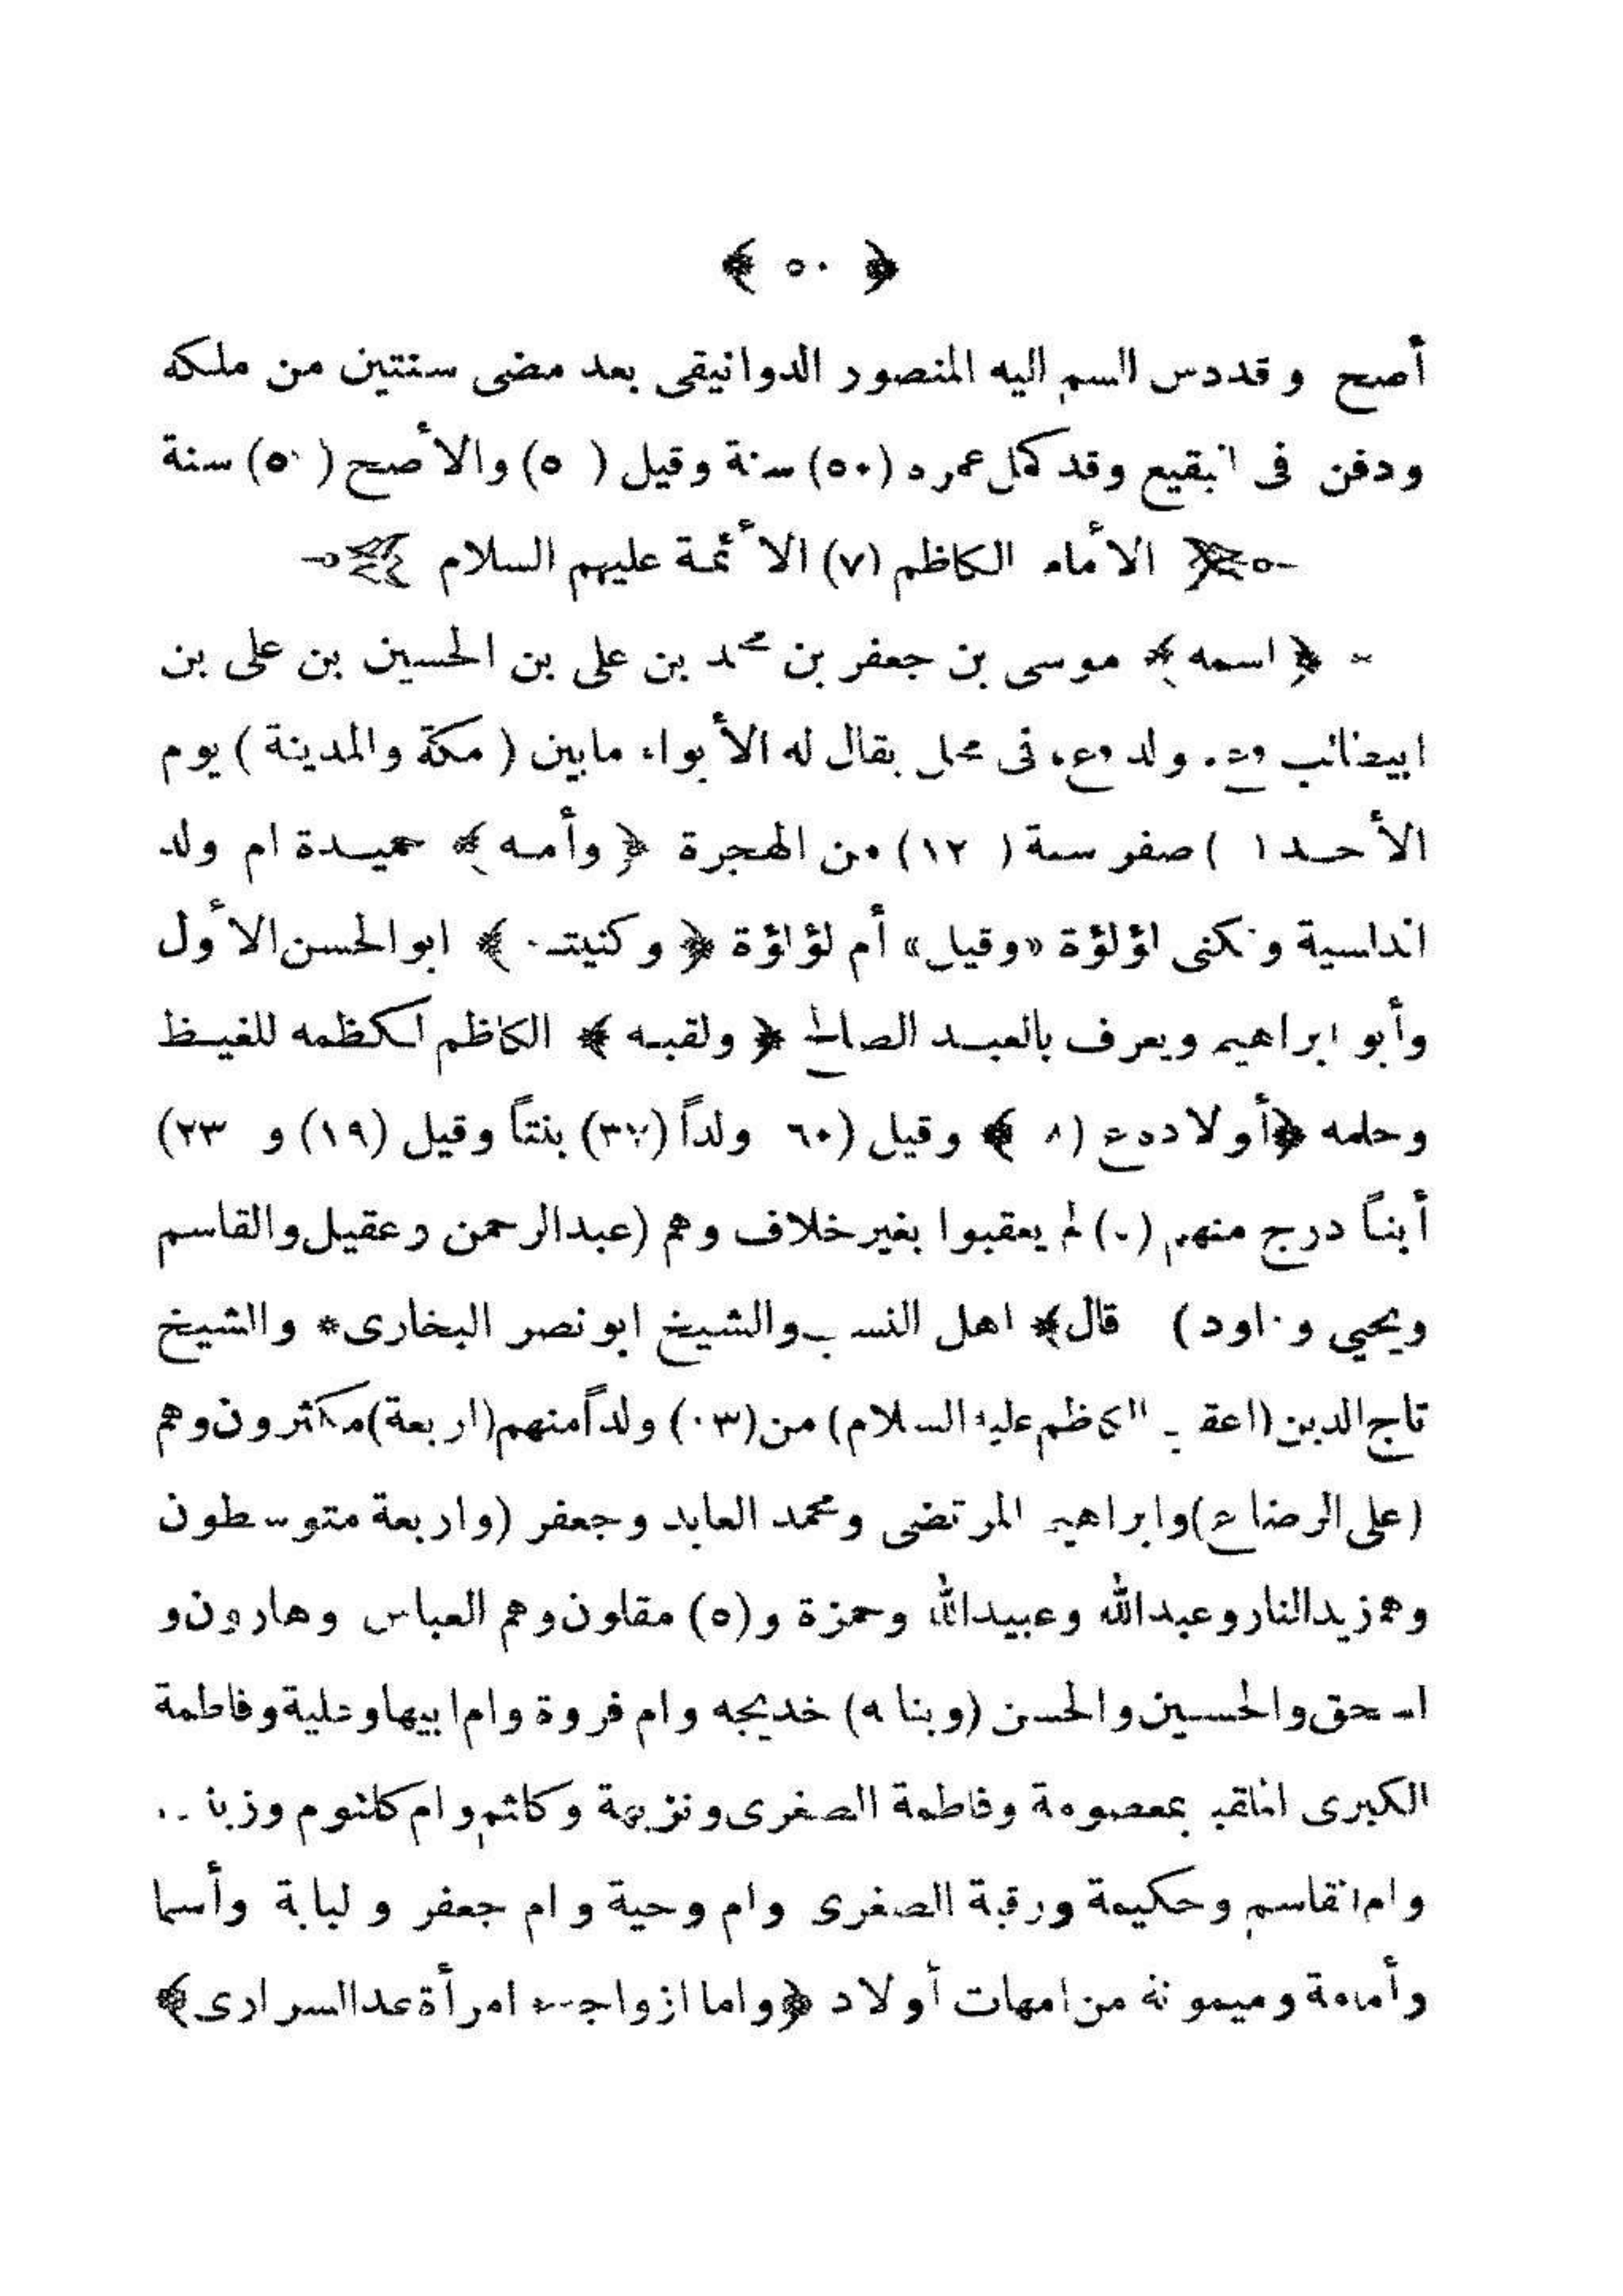 ﴿ ٥٠ ﴾
أصح وقد دس السم اليه المنصور الدوانيقى بعد مضى سنتين من ملكه
ودفن فى البقيع وقد كمل عمره (٥٠) سنة وقيل ( ٥) والأصح ( ٥) سنة
الأمام الكاظم (٧) الأئمة عليهم السلام
﴿ اسمه ﴾ موسى بن جعفر بن محمد بن على بن الحسين بن على بن
ابيطالب «ع» ولد «ع» فى محل يقال له الأبواء مابين ( مكة والمدينة ) يوم
الأحد ١ ) صفر سنة ( ١٢) من الهجرة ﴿ وأمه ﴾ حميدة ام ولد
اندلسية وتكنى لؤلؤة «وقيل» أم لؤلؤة ﴿ وكنيته ﴾ ابو الحسن الأول
وأبو ابراهيم ويعرف بالعبد الصالح ﴿ ولقبه ﴾ الكاظم لكظمه للغيظ
وحلمه ﴿ أولاده ع (٨ ﴾ وقيل (٦٠ ولداً (٣٧) بنتاً وقيل (١٩) و ٢٣)
أبناً درج منهم ( ) لم يعقبوا بغير خلاف وهم (عبدالرحمن وعقيل والقاسم
ويحيي وداود) قال﴾ اهل النسب والشيخ ابو نصر البخارى* والشيخ
تاج الدين (اعقب الكاظم عليه السلام) من (٠٣) ولداً منهم (اربعة) مكثرون وهم
(على الرضا ع) وابراهيم المرتضى ومحمد العابد وجعفر (واربعة متوسطون
وهم زيد النار وعبدالله وعبيدالله وحمزة و(٥) مقلون وهم العباس وهارون و
اسحق والحسين والحسن (وبناته) خديجه وام فروة وام ابيها وعلية وفاطمة
الكبرى الملقبه بمعصومة وفاطمة الصغرى ونزيهة وكلثم وام كلثوم وزينب
وام القاسم وحكيمة ورقية الصغرى وام وحية وام جعفر ولبابة وأسما
وأمامة وميمونة من امهات أولاد ﴿ واما ازواجه امرأة عدا السرارى ﴾